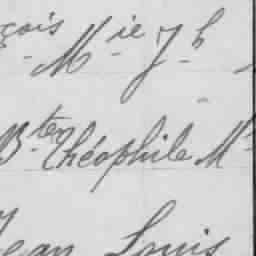 çois M-ie J-h
B-ten Théophile M
Jean Louis